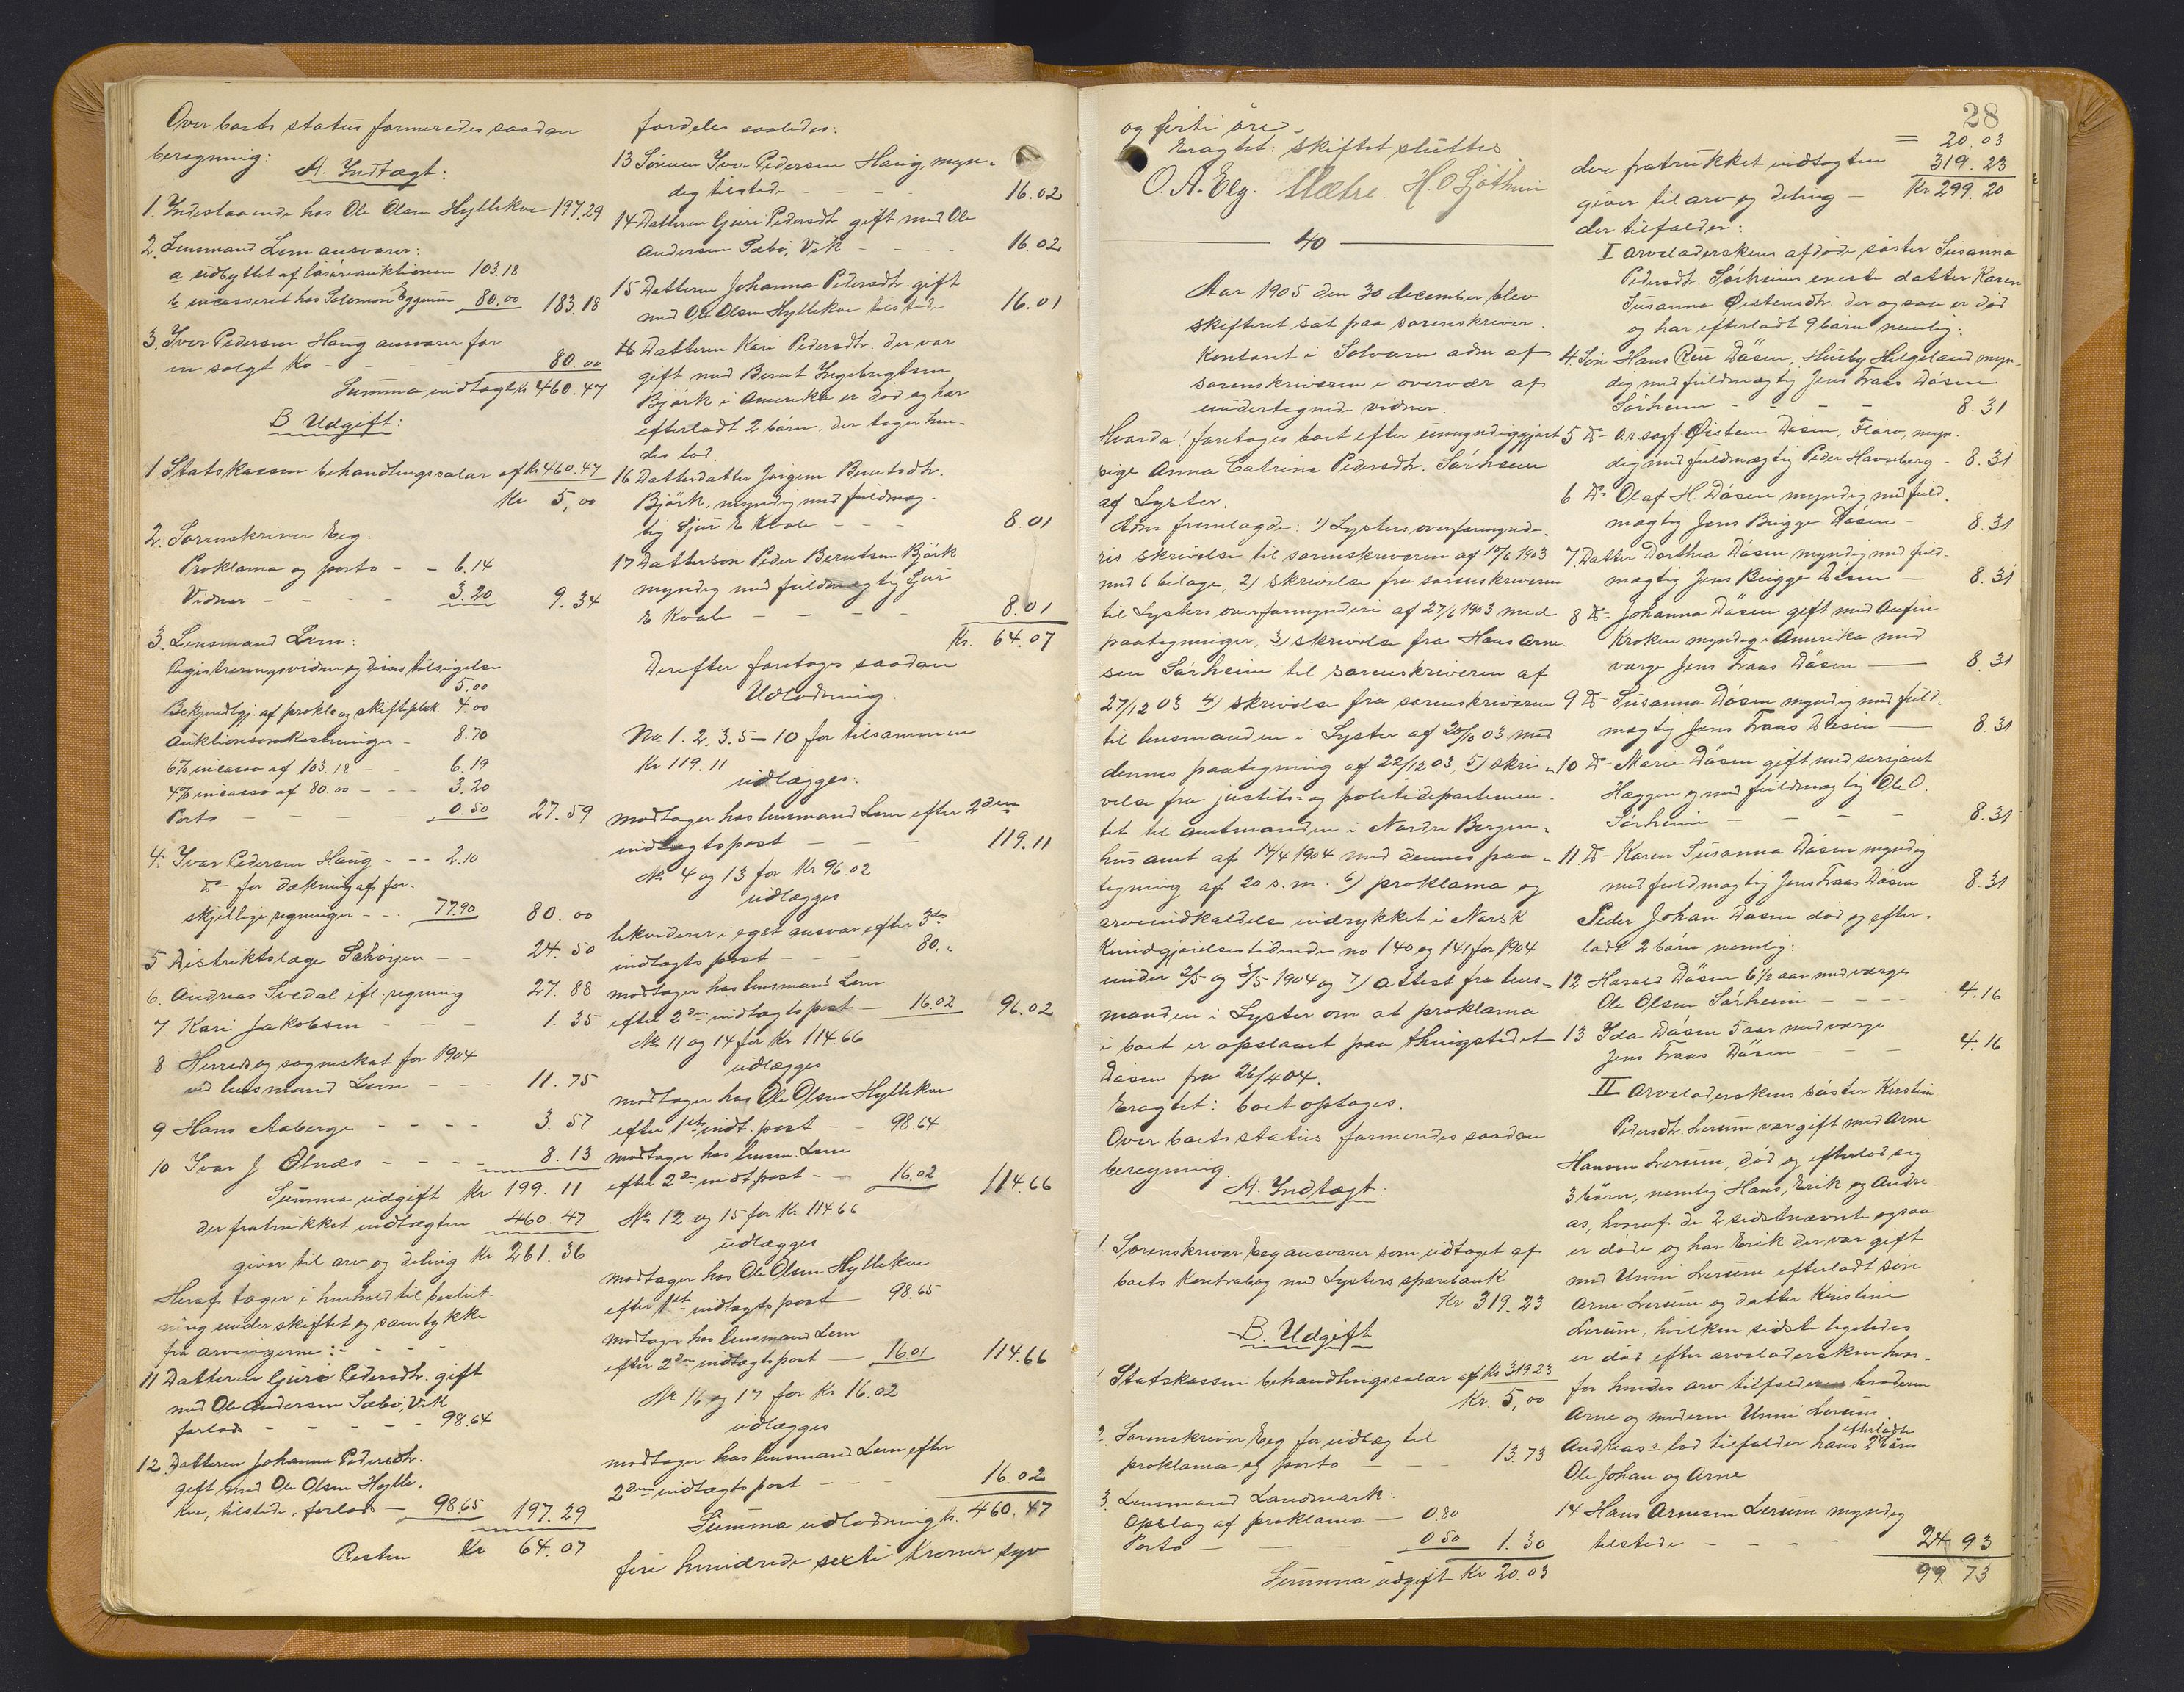 Over boets status formeredes saadan
beregning:
A. Indtægt:
1. Indestaaende hos Ole Olsen Hyllekve 197.29
2. Lensmand Lem ansvarer:
a udbyttet af løsøreauktionen 103.18
b incasseret hos Solomon Eggum 80.00 183.18
3. Iver Pedersen Haug ansvarer for
en solgt Ko - - - - 80.00
Summa indtægt kr 460.47
B Udgift:
1 Statskassen behandlingssalær af kr 460.47
Kr 5,00
2. Sorenskriver Eeg.
Proklama og porto - - 6.14
Vidner - - - - 3.20 9.34
3. Lensmand Lem:
Registreringsvidner og disses tilsigelse
5.00
Bekjendtgj. af prokl. og skiftplak. 4.00
Auktionsomkostninger - 8.70
6% incasso af 103.18 - - 6.19
4% incasso af 80.00 - - - 3.20
Porto - - - - - 0.50 27.59
4. Ivar Pedersen Haug - - - 2.10
Do for dækning af for-
skjellige regninger - - - 77.90 80.00
5 Distriktslæge Schörjen - - 24.50
6. Andreas Svedal ifl. regning 27.88
7 Kari Jakobsen - - - - 1.35
8 Herreds og sogneskat for 1904
ved lensmand Lem - - - 11.75
9 Hans Aaberge - - - - 3.57
10 Ivar J. Ølnæs - - - - 8.13
Summa udgift kr 199.11
der fratrukket indtægten 460.47
giver til arv og deling Kr 261.36
Heraf tager i henhold til beslut-
ning under skiftet og samtykke
fra arvingerne: - - - -
11 Datteren Guri Pedersdtr. gift
med Ole Andersen Sæbø, Vik
forlod - - - - - 98.64
12 Datteren Johanna Pedersdtr.
gift med Ole Olsen Hylle-
kve, tilstede, forlod - 98.65 197.29
Resten Kr 64.07
fordeles saaledes:
13 Sønnen Iver Pedersen Haug, myn-
dig tilstede - - - - 16.02
14 Datteren Guri Pedersdtr. gift med Ole
Andersen Sæbø, Vik - - - - 16.02
15 Datteren Johanna Pedersdtr. gift
med Ole Olsen Hyllekve tilstede 16.01
16 Datteren Kari Pedersdtr. der var
gift med Bernt Ingebrigtsen
Björk i Amerika er död og har
efterladt 2 börn, der tager hen-
des lod.
16 Datterdatter Jörgine Berntsdtr.
Björk, myndig med fuldmæg-
tig Sjur E Kvale - - - 8.01
17 Dattersön Peder Berntsen Björk
myndig med fuldmægtig Sjur
E Kvale - - - - 8.01
Kr. 64.07
Derefter foretoges saadan
Udlodning.
No 1. 2. 3. 5-10 for tilsammen
Kr 119.11
udlægges:
modtager hos lensmand Lem efter 2den
indtægtspost - - - - 119.11
No 4 og 13 for Kr 96.02
udlægges
likviderer i eget ansvar efter 3die
indtægtspost - - - 80.-
modtager hos lensmand Lem
efter 2den indtægtspost - 16.02 96.02
No 11 og 14 for Kr 114.66
udlægges
modtager hos Ole Olsen Hyllekve
efter 1ste indt. post - - 98.64
modtager hos lensm. Lem
efter 2den indt post - - 16.02 114.66
No 12 og 15 for Kr 114.66
udlægges
modtager hos Ole Olsen Hyllekve
efter 1ste indtægtspost 98.65
modtager hos lensmand Lem
efter 2den indtægtspost - 16.01 114.66
No 16 og 17 for Kr 16.02
udlægges
modtager hos lensmand Lem efter
2den indtægtspost - - 16.02
Summa udlodning kr. 460.47
fire hundrede sexti Kroner syv
og firti øre.
Eragtet: skiftet sluttes
O. A. Eeg. Mætre. H. O Sjöthun
40
Aar 1905 den 30 december blev
skifteret sat paa sorenskriver
kontoret i Solvorn adm af
sorenskriveren i overvær af
undertegnede vidner.
Hvorda: foretages boet efter umyndiggjort
pige Anna Catrine Pedersdtr. Sørheim
af Lyster.
Adm. fremlagde: 1) Lysters overformynde-
ris skrivelse til sorenskriveren af 10/6 1903
med 6 bilage, 2) skrivelse fra sorenskriveren
til Lysters overformynderi af 27/6 1903 med
paategninger, 3) skrivelse fra Hans Arne-
sen Sørheim til sorenskriveren af
27/12 03 4) skrivelse fra sorenskriveren
til lensmanden i Lyster af 20/10 03 med
dennes paategning af 22/12 03, 5) skri-
velse fra justits- og politidepartemen-
tet til amtmanden i Nordre Bergen-
hus amt af 14/4 1904 med dennes paa-
tegning af 20 s.m. 6) proklama og
arveindkaldelse indrykket i Norsk
Kundgjørelsestidende no 140 og 141 for 1904
under 2/5 og 3/5 1904 og 7) attest fra lens-
manden i Lyster om at proklama
i boet er opslaaet paa thingstedet
Døsen fra 26/4 04.
Eragtet: boet optages.
Over boets status formeredes saadan
beregning.
A. Indtægt:
1. Sorenskriver Eeg ansvarer som udtaget af
boets kontrabog med Lysters sparebank
Kr 319.23
B. Udgift
1 Statskassen behandlingssalær af Kr 319.23
Kr. 5,00
2. Sorenskriver Eeg for udlæg til
proklama og porto - - - 13.73
3. Lensmand Landmark:
Opslag af proklama - 0.80
Porto - - - 0.50 1.30
Summa udgift Kr 20.03
28
= 20.03
der fratrukket indtægten 319.23
giver til arv og deling - Kr 299.20
der tilfalder:
I arveladerskens afdøde søster Susanna
Pedersdtr. Sørheims eneste datter Karen
Susanna Øistensdtr. der ogsaa er død
og har efterladt 9 børn nemlig:
4. Søn Hans Rue Døsen, Husby Helgeland myn-
dig med fuldmægtig Jens Traas Døsen
Sørheim - - - - 8.31
5 Do O.r.sagf. Øisten Døsen, Florø, myn-
dig med fuldmægtig Peder Havnberg - 8.31
6 Do Olaf H. Døsen myndig med fuld-
mægtig Jens Brigge Døsen - 8.31
7 Datter Dorthea Døsen myndig med fuld-
mægtig Jens Brigge Døsen - 8.31
8 Do Johanna Døsen gift med Anfin
Kroken myndig i Amerika med
værge Jens Traas Døsen - 8.31
9 Do Susanna Døsen myndig med fuld-
mægtig Jens Traas Døsen - 8.31
10 Do Marie Døsen gift med sersjant
Hæggen og med fuldmægtig Ole O.
Sørheim - - - - 8.31
11 Do Karen Susanna Døsen myndig
med fuldmægtig Jens Traas Døsen 8.31
Peder Johan Døsen død og efter-
ladt 2 børn nemlig:
12 Harald Døsen 6 1/2 aar med værge
Ole Olsen Sørheim - - - - 4.16
13 Ida Døsen 5 aar med værge
Jens Traas Døsen - - - 4.16
II arveladerskens søster Kirstin
Pedersdtr. Lerum var gift med Arne
Hansen Lerum, død og efterlod sig
3 børn, nemlig Hans, Erik og Andre-
as, hvoraf de 2 sidstnævnte ogsaa
er døde og har Erik der var gift
med Unni Lerum efterladt søn
Arne Lerum og datter Kirstine
Lerum, hvilken sidste ligeledes
er død efter arveladersken hvor-
for hendes arv tilfalder broderen
Arne og moderen Unni Lerum
Andreas's lod tilfalder hans efterladte 2 børn
Ole Johan og Arne
14 Hans Arnesen Lerum myndig
tilstede - - - - 24.93
99.73